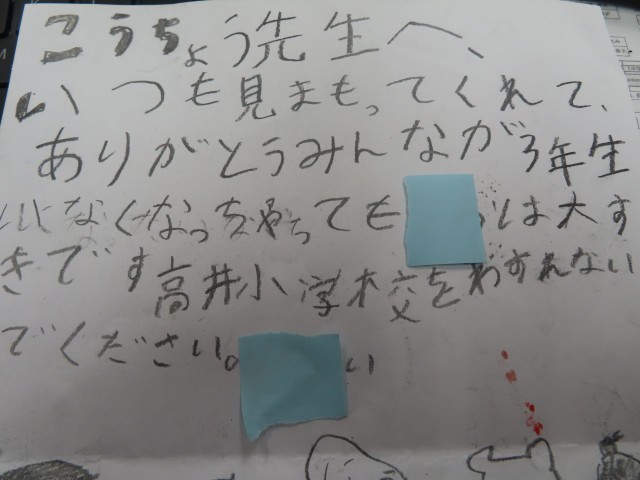 こうちょう先生へ、
いつも見まもってくれて、
ありがとうみんなが3年生
いなくなっちゃっても は大す
きです高井小学校をわすれない
でください。 い